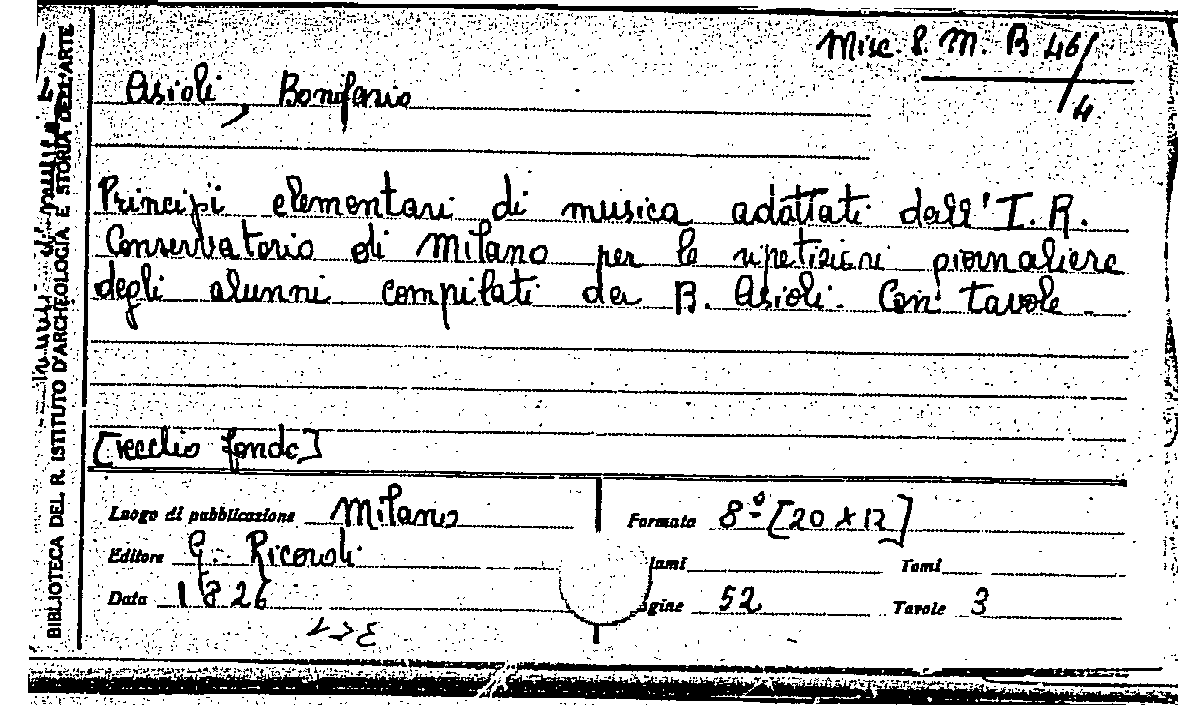 Misc. S. M. B 46/4
Asioli, Bonifazio
Principi elementari di musica adottati dall' I. R.
Conservatorio di Milano per le ripetizioni giornaliere
degli alunni compilati da B. Asioli. Con tavole.
[vecchio fondo]
Luogo di pubblicazione Milano
Formato 8º [20 x 12]
Editore G. Ricordi
lumi Tomi
Data 1826
agine 52 Tavole 3
BIBLIOTECA DEL R. ISTITUTO D'ARCHEOLOGIA E STORIA DELL'ARTE